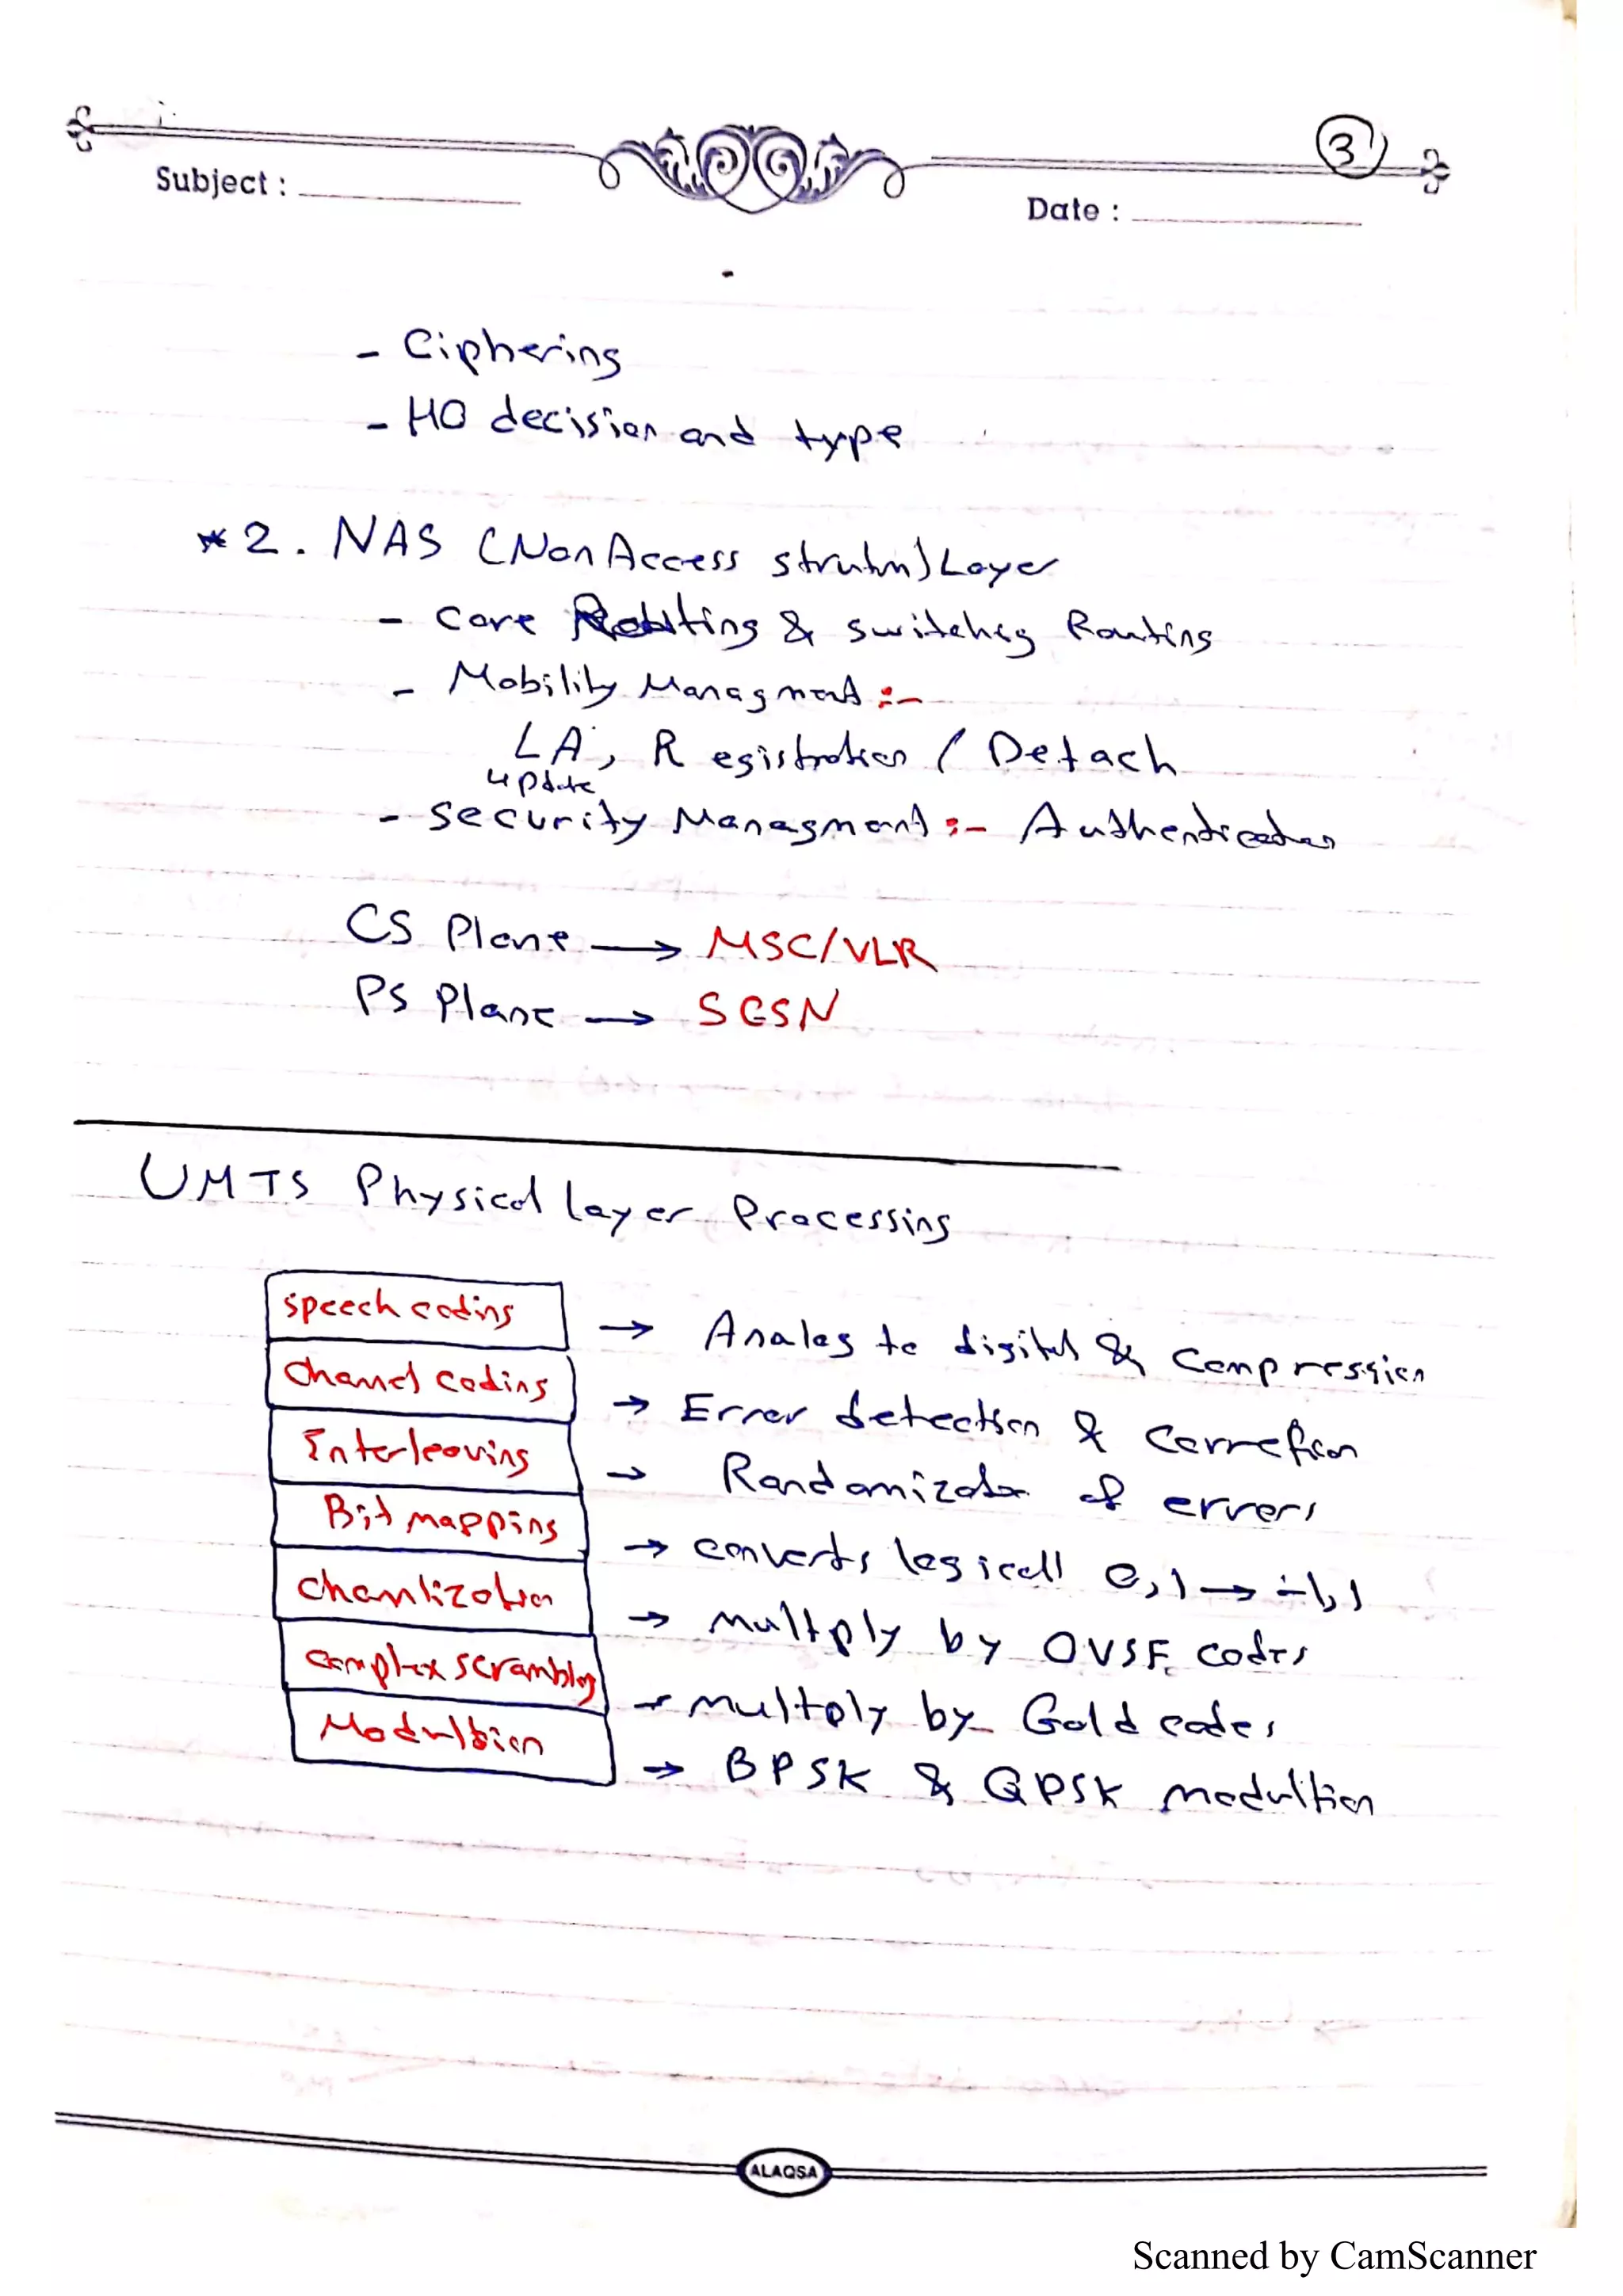 3
Subject :
Date :
- Ciphering
- HO decision and type
* 2. NAS (Non Access stratum) Layer
- Core Routing & switching Routing
- Mobility Managment :-
LA, Registration / Detach
update
- Security Managment :- Authentication
CS Plane → MSC/VLR
PS Plane → SGSN
UMTS Physical Layer Processing
speech coding → Analog to digital & Compression
Channel coding → Error detection & Correction
Interleaving → Randomization of errors
Bit mapping → converts logicall 0,1 → -1,1
Chanlization → Multply by OVSF codes
complex scrambling → Multply by Gold codes
Modultion → BPSK & QPSK modultion
ALAQSA
Scanned by CamScanner